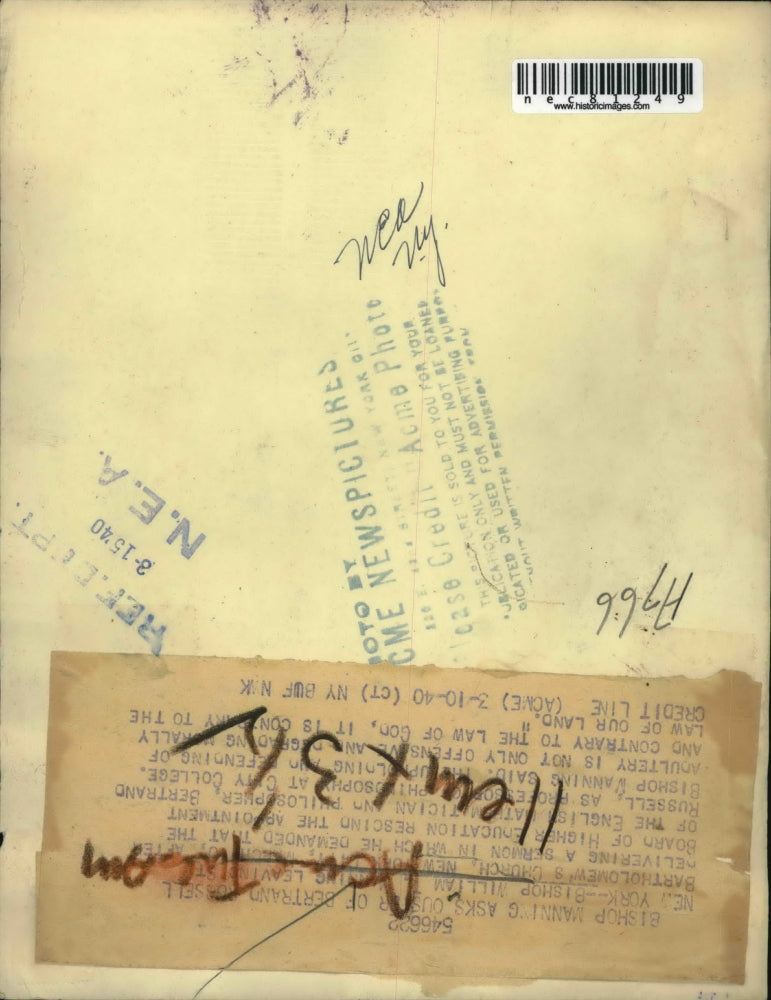 nec81249
www.historicimages.com
nea
ny.
PHOTO BY
ACME NEWSPICTURES
NEW YORK CITY
Acme Photo
THIS PICTURE IS SOLD TO YOU FOR YOUR
PUBLICATION ONLY AND MUST NOT BE LOANED
OR USED FOR ADVERTISING
WITHOUT WRITTEN PERMISSION
REF. DEPT.
3-15-40
N.E.A.
H766
546622
BISHOP MANNING ASKS OUSTER OF BERTRAND RUSSELL
NEW YORK--BISHOP WILLIAM MANNING LEAVING ST.
BARTHOLOMEW'S CHURCH, NEW YORK, AFTER
DELIVERING A SERMON IN WHICH HE DEMANDED THAT THE
BOARD OF HIGHER EDUCATION RESCIND THE APPOINTMENT
OF THE ENGLISH MATHEMATICIAN AND PHILOSOPHER, BERTRAND
RUSSELL, AS PROFESSOR OF PHILOSOPHY AT CITY COLLEGE.
BISHOP MANNING SAID: "THE UPHOLDING AND DEFENDING OF
ADULTERY IS NOT ONLY OFFENSIVE AND DEGRADING MORALLY
AND CONTRARY TO THE LAW OF GOD, IT IS CONTRARY TO THE
LAW OF OUR LAND."
CREDIT LINE (ACME) 3-10-40 (CT) NY BUF NWK